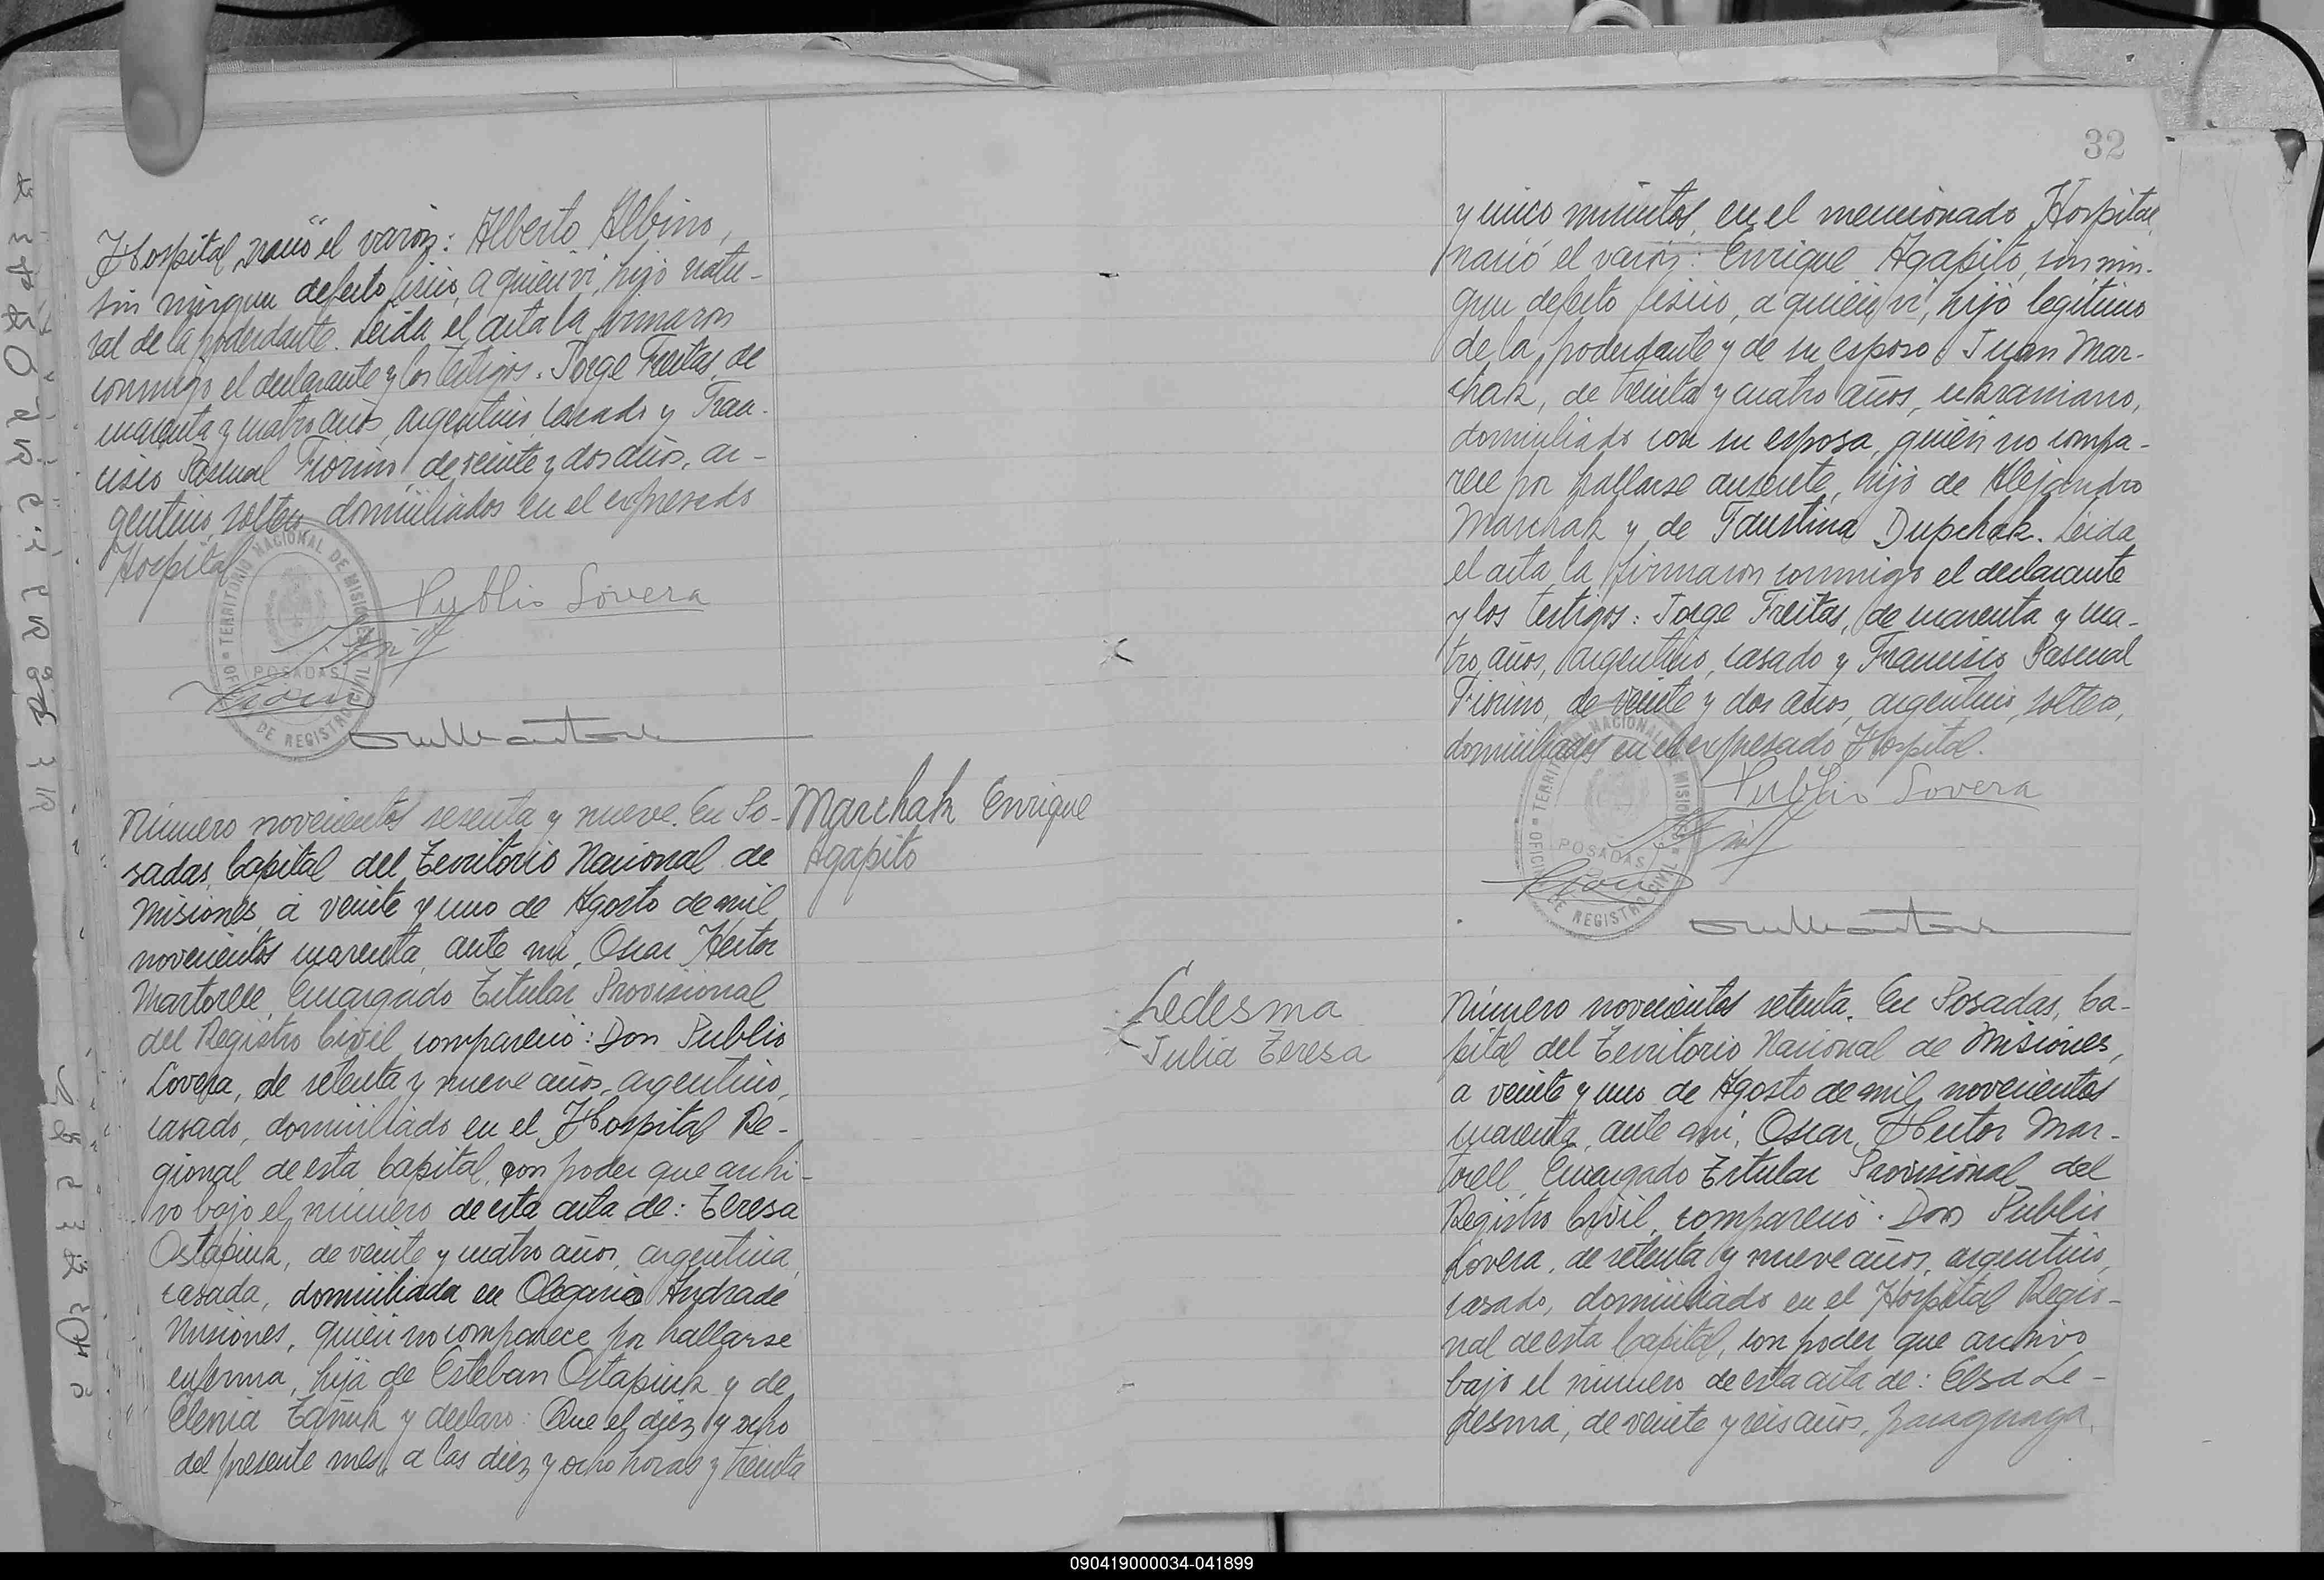 Hospital, nació el varón: Alberto Albino,
sin ningun defecto fisico, a quien vi, hijo natu-
ral de la poderdante. Leida el acta la firmaron
conmigo el declarante y los testigos. Jorge Freitas, de
cuarenta y cuatro años, argentino, casado y Fran-
cisco Pascual Fiorino, de veinte y dos años, ar-
gentino, soltero, domiciliados en el expresado
Hospital
Publio Lovera
TERRITORIO NACIONAL DE MISIONES
POSADAS
OFICINA DE REGISTRO CIVIL
Número novecientos sesenta y nueve. En Po-
sadas, Capital del Territorio Nacional de
Misiones, a veinte y uno de Agosto de mil
novecientos cuarenta, ante mi, Oscar Hector
Martorell, Encargado Titular Provisional
del Registro Civil, compareció: Don Publio
Lovera, de setenta y nueve años, argentino,
casado, domiciliado en el Hospital Re-
gional de esta Capital, con poder que archi-
vo bajo el número de esta acta de: Teresa
Ostapiuk, de veinte y cuatro años, argentina,
casada, domiciliada en Olegario Andrade
Misiones, quien no comparece por hallarse
enferma, hija de Esteban Ostapiuk y de
Elenia Zañuk y declaro: Que el diez y ocho
del presente mes, a las diez y ocho horas y treinta
Marchak Enrique
Agapito
32
y cinco minutos, en el mencionado Hospital,
nació el varón: Enrique Agapito, sin nin-
gun defecto fisico, a quien vi, hijo legitimo
de la poderdante y de su esposo Juan Mar-
chak, de treinta y cuatro años, ukraniano,
domiciliado con su esposa, quien no compa-
rece por hallarse ausente, hijo de Alejandro
Marchak y de Faustina Dupchak. Leida
el acta la firmaron conmigo el declarante
y los testigos: Jorge Freitas, de cuarenta y cua-
tro años, argentino, casado y Francisco Pascual
Fiorino, de veinte y dos años, argentino, soltero,
domiciliados en el expresado Hospital.
Publio Lovera
TERRITORIO NACIONAL DE MISIONES
POSADAS
OFICINA DE REGISTRO CIVIL
Ledesma
Julia Teresa
Número novecientos setenta. En Posadas, Ca-
pital del Territorio Nacional de Misiones,
a veinte y uno de Agosto de mil novecientos
cuarenta, ante mi, Oscar Hector Mar-
torell Encargado Titular Provisional del
Registro Civil, compareció: Don Publio
Lovera, de setenta y nueve años, argentino,
casado, domiciliado en el Hospital Regio-
nal de esta Capital, con poder que archivo
bajo el número de esta acta de: Elsa Le-
desma, de veinte y seis años, paraguaya,
090419000034-041899